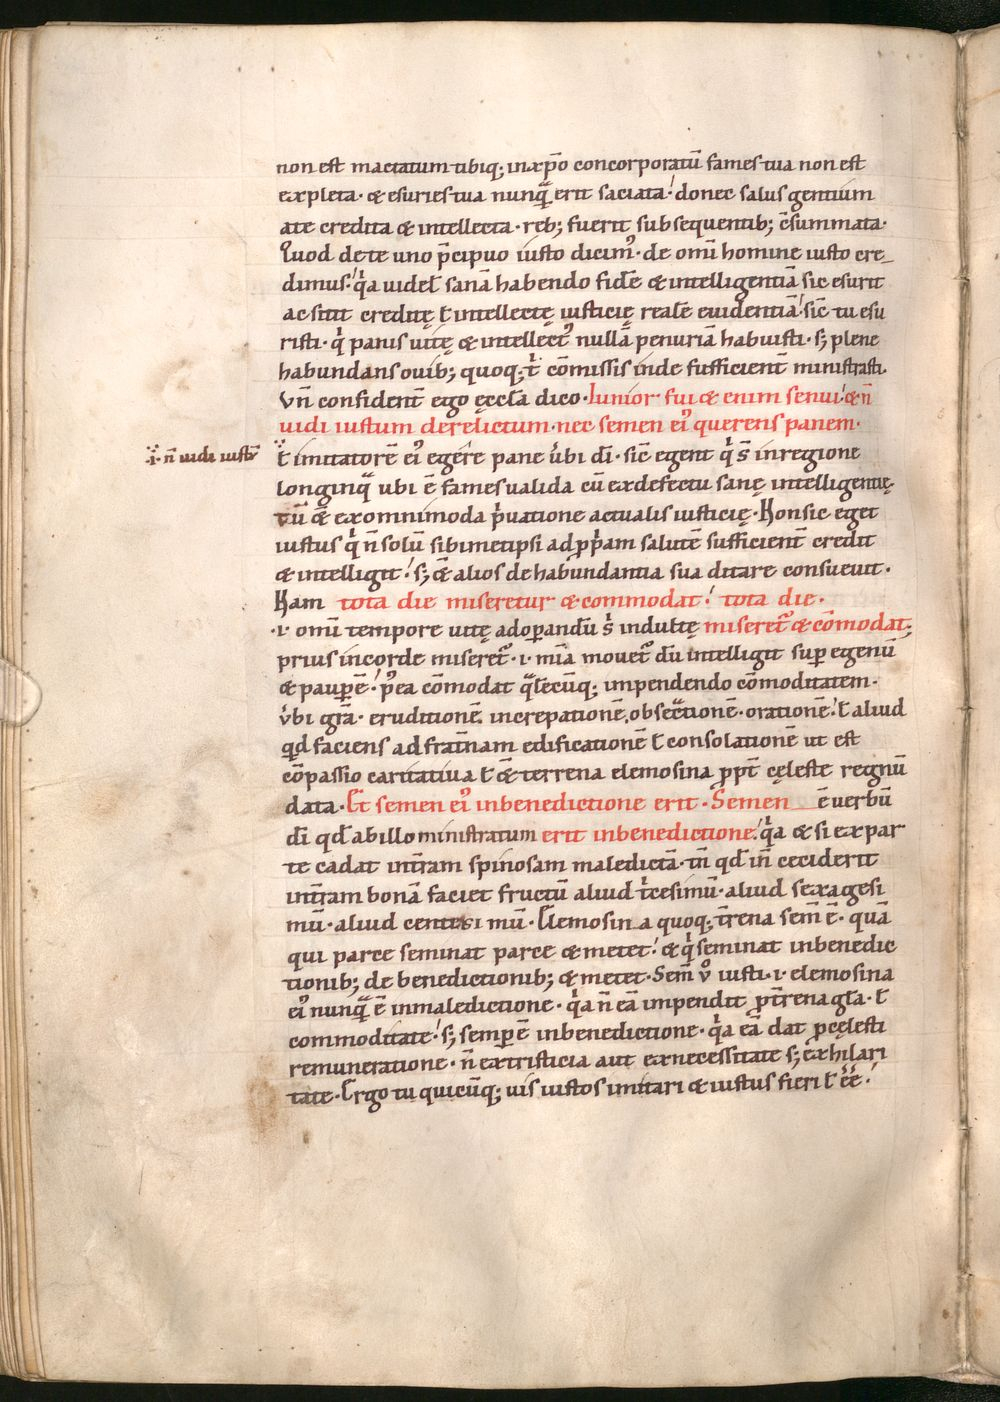 non est mactatum tibiq; in xp̄o concorporatū fames tua non est
expleta · & esuries tua nunqᵃ̄ erit saciata! donec salus gentium
a te credita & intellecta · reb; fuerit subsequentib; c̄summata·
Quod de te uno p̄cipuo iusto dicimꝰ · de omī homine iusto cre-
dimus! qͥa uidel̄ sanā habendo fidē & intelligentiā sic esurit
ac sitit creditę ł intellectę iusticię realē euidentiā! sic̄ tu esu
risti · qͥ panis uitę & intellectꝰ nullā penuriā habuisti · s; plene
habundans ouib; quoq; t̄ cōmissis inde sufficient̄ ministrasti.
Vn̄ confident̄ ego ęccła dico · Iunior fui & enim senui! & n̄
uidi iustum derelictum · nec semen eiꝰ querens panem ·
·i· n̄ uidi iustū
ł imitatorē eiꝰ egêre pane ûbi dī · sic̄ egent qͥ s̄ in regione
longinqᵃ ubi ē fames ualida cū ex defectu sanę intelligentię
tū &̄ ex omnimoda pͥuatione actualis iusticię · Non sic eget
iustus qͥ n̄ solū sibimetipsi ad ꝓpͥam salutē sufficient̄ credit
& intelligit! s; &̄ alios de habundantia sua ditare consueuit ·
Nam tota die miseretur & commodat! tota die ·
·i· omī tempore uitę ad oꝑandū sͥ indultę miseret᷑ & cōmodat;
prius in corde miseret᷑ · i · mīa mouet᷑ dū intelligit suꝑ egenū
& pauꝑē! p̄ea cōmodat qᵃlēcūq; impendendo cōmoditatem ·
ûbi gr̄a · eruditionē increpationē, obsecᵃtionē · orationē! ł aliud
qͥd faciens ad frat̄nam edificationē ł consolationē ut est
cōpassio caritatiua ł &̄ terrena elemosina ꝓpt̄ cęleste regnū
data · Et semen eiꝰ in benedictione erit · Semen ē uerbū
dī qd̄ ab illo ministratum erit in benedictione! qͥa & si ex par
te cadat in t̄ram spinosam maledictā · tn̄ qd̄ in̄ ceciderit
in t̄ram bonā faciet fructū aliud tͥcesimū · aliud sexagesi
mū · aliud centesimū · Elemosina quoq; t̄rena sem̄ ē · quā
qui parce seminat parce & metet! & qͥ seminat in benedic
tionib; de benedictionib; & metet · Sem̄ v̊ iusti · i · elemosina
eiꝰ nunqᵃ̄ ē in maledictione · qͥa n̄ eā impendit ꝓ t̄rena gła · ł
commoditate! s; semꝑ ē in benedictione · qͥa eā dat ꝓ cęlesti
remuneratione · n̄ ex tristicia aut ex necessitate s; ex hilari
tate · Ergo tu quicūq; uis iustos imitari & iustus fieri ł ēē!